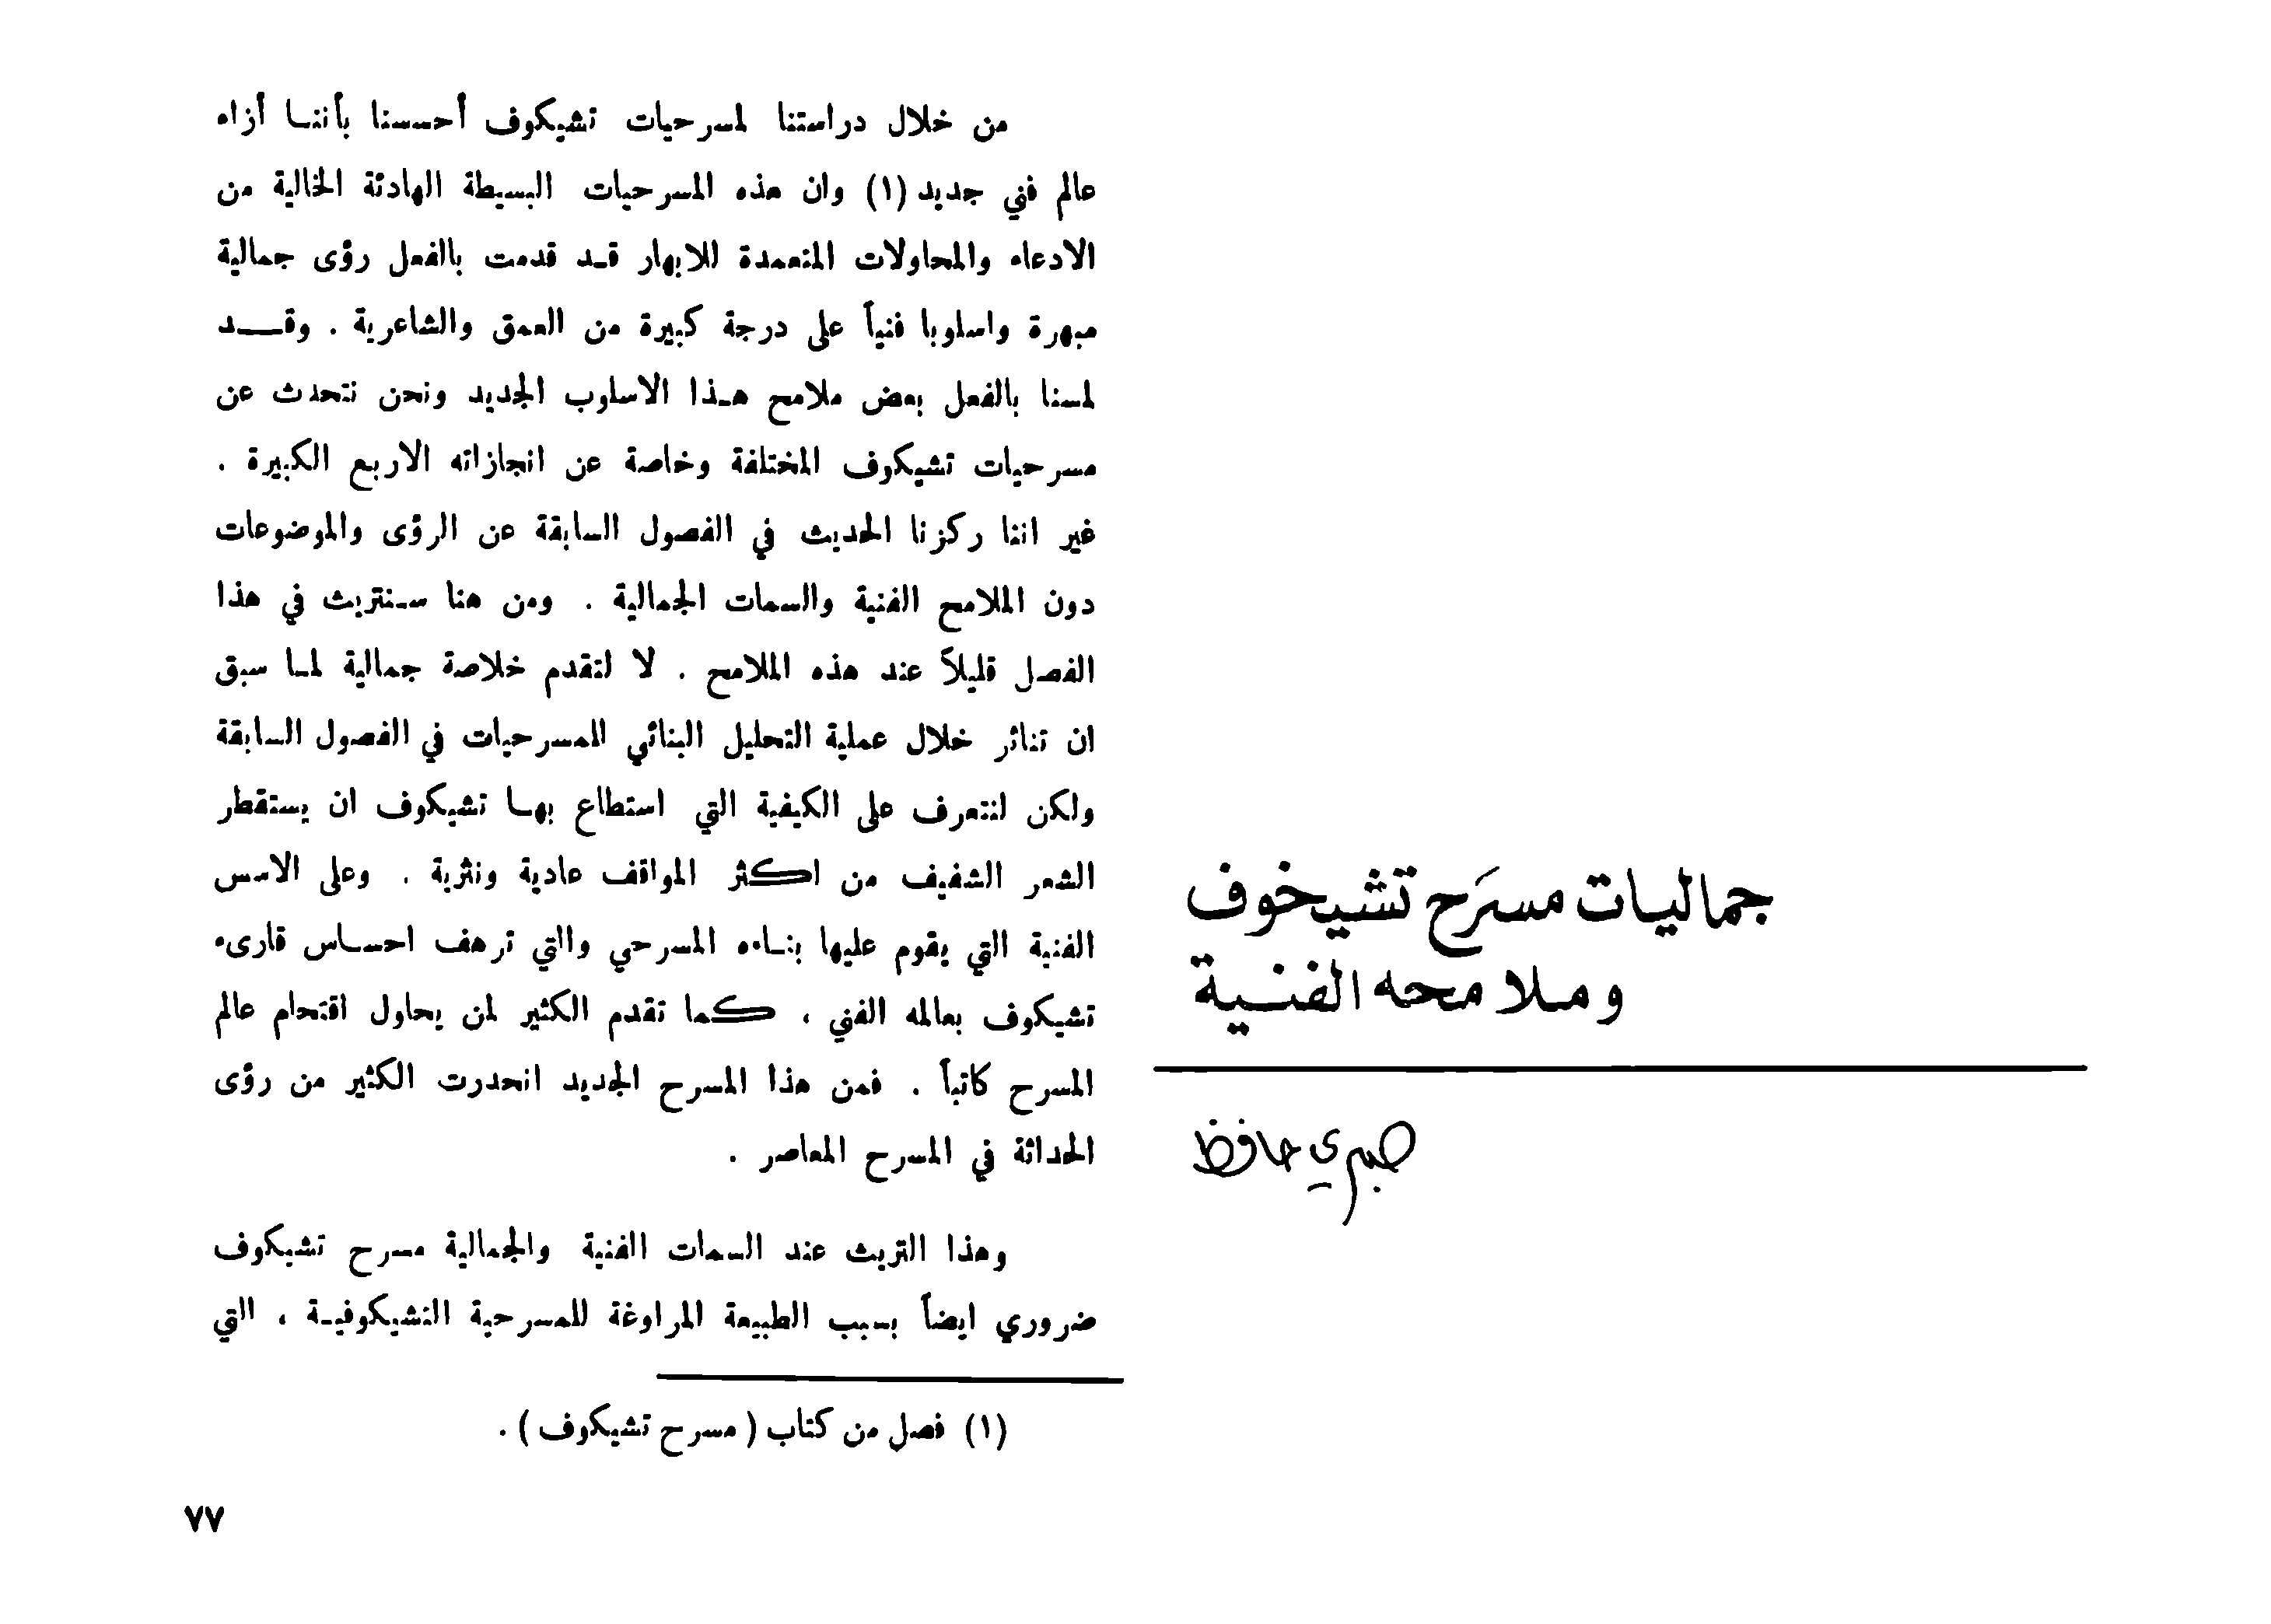 جماليات مسرح تشيخوف
وملامحه الفنية
صبري حافظ
من خلال دراستنا لمسرحيات تشيكوف أحسسنا بأننا أزاء
عالم فني جديد (١) وان هذه المسرحيات البسيطة الهادئة الخالية من
الادعاء والمحاولات المتعمدة للابهار قد قدمت بالفعل رؤى جمالية
مبهرة واسلوبا فنياً على درجة كبيرة من العمق والشاعرية . وقد
لمسنا بالفعل بعض ملامح هذا الاسلوب الجديد ونحن نتحدث عن
مسرحيات تشيكوف المختلفة وخاصة عن انجازاته الاربع الكبيرة .
غير اننا ركزنا الحديث في الفصول السابقة عن الرؤى والموضوعات
دون الملامح الفنية والسمات الجمالية . ومن هنا سنتريث في هذا
الفصل قليلاً عند هذه الملامح . لا لتقدم خلاصة جمالية لما سبق
ان تناثر خلال عملية التحليل البنائي للمسرحيات في الفصول السابقة
ولكن لنتعرف على الكيفية التي استطاع بها تشيكوف ان يستقطر
الشعر الشفيف من اكثر المواقف عادية ونثرية . وعلى الاسس
الفنية التي يقوم عليها بناءه المسرحي والتي ترهف احساس قارىء
تشيكوف بعالمه الفني ، كما تقدم الكثير لمن يحاول اقتحام عالم
المسرح كاتباً . فمن هذا المسرح الجديد انحدرت الكثير من رؤى
الحداثة في المسرح المعاصر .
وهذا التريث عند السمات الفنية والجمالية مسرح تشيكوف
ضروري ايضاً بسبب الطبيعة المراوغة للمسرحية التشيكوفية ، التي
(١) فصل من كتاب ( مسرح تشيكوف ) .
٧٧